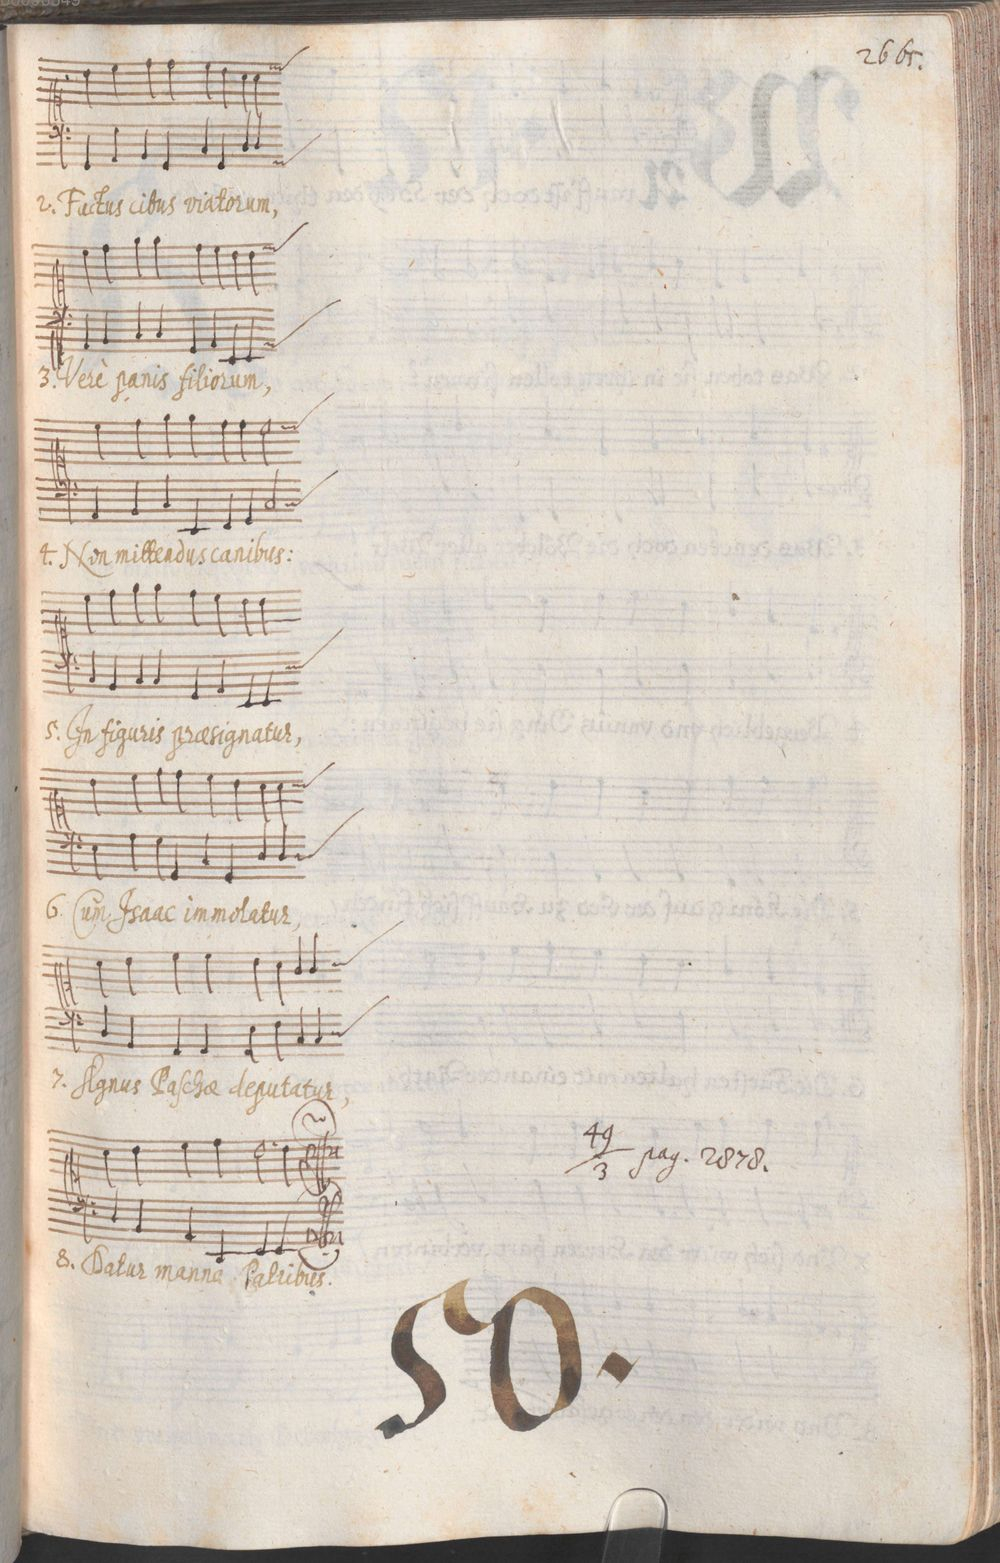 2665.
2. Factus cibus viatorum,
3. Verè panis filiorum,
4. Non mittendus canibus:
5. In figuris præsignatur,
6. Cum Isaac immolatur,
7. Agnus Paschæ deputatur,
8. Datur manna Patribus.
49
3 pag. 2878.
50.